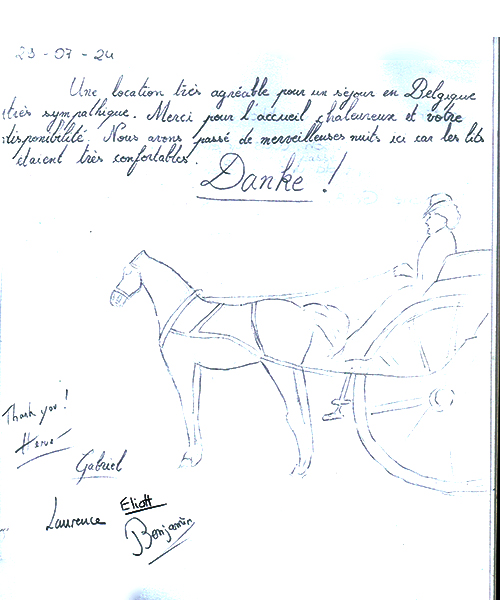 29-07-24
Une location très agréable pour un séjour en Belgique
très sympathique. Merci pour l'accueil chaleureux et votre
disponibilité. Nous avons passé de merveilleuses nuits ici car les lits
étaient très confortables.
Danke !
Thank you !
Hervé
Gabriel
Eliott
Laurence
Benjamin